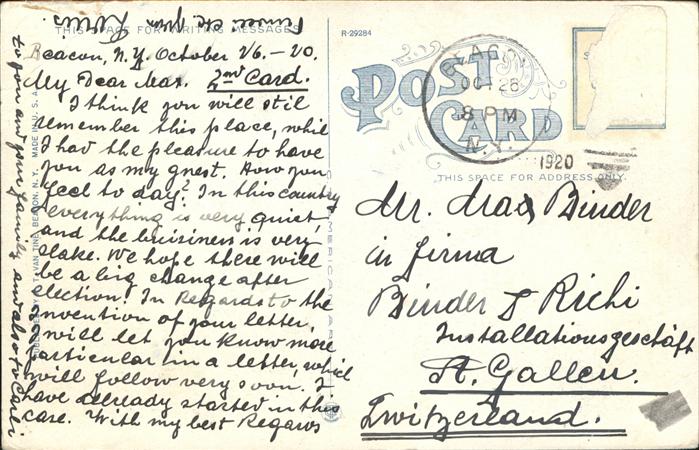 THIS SPACE FOR WRITING MESSAGES
Beacon, N.Y. October 26.-20.
My Dear Max. 2nd Card.
I think you will still
remember this place, while
I had the pleasure to have
you as my guest. How you
feel to day? In this country
everything is very quiet,
and the buisiness is very
slake. We hope there will
be a big change after
election! In Regards to the
invention of your letter,
I will let you know more
particular in a letter, which
will follow very soon. I
have allready started in this
care. With my best Regards
to you and your family and also to Carl:
R-29284
POST CARD
BEACON
OCT 26
8 PM
N.Y.
1920
THIS SPACE FOR ADDRESS ONLY.
Mr. Max Binder
in firma
Binder & Richi
Installationsgeschäft
St. Gallen.
Switzerland.
VAN TINE, BEACON, N.Y. MADE IN U.S.A.